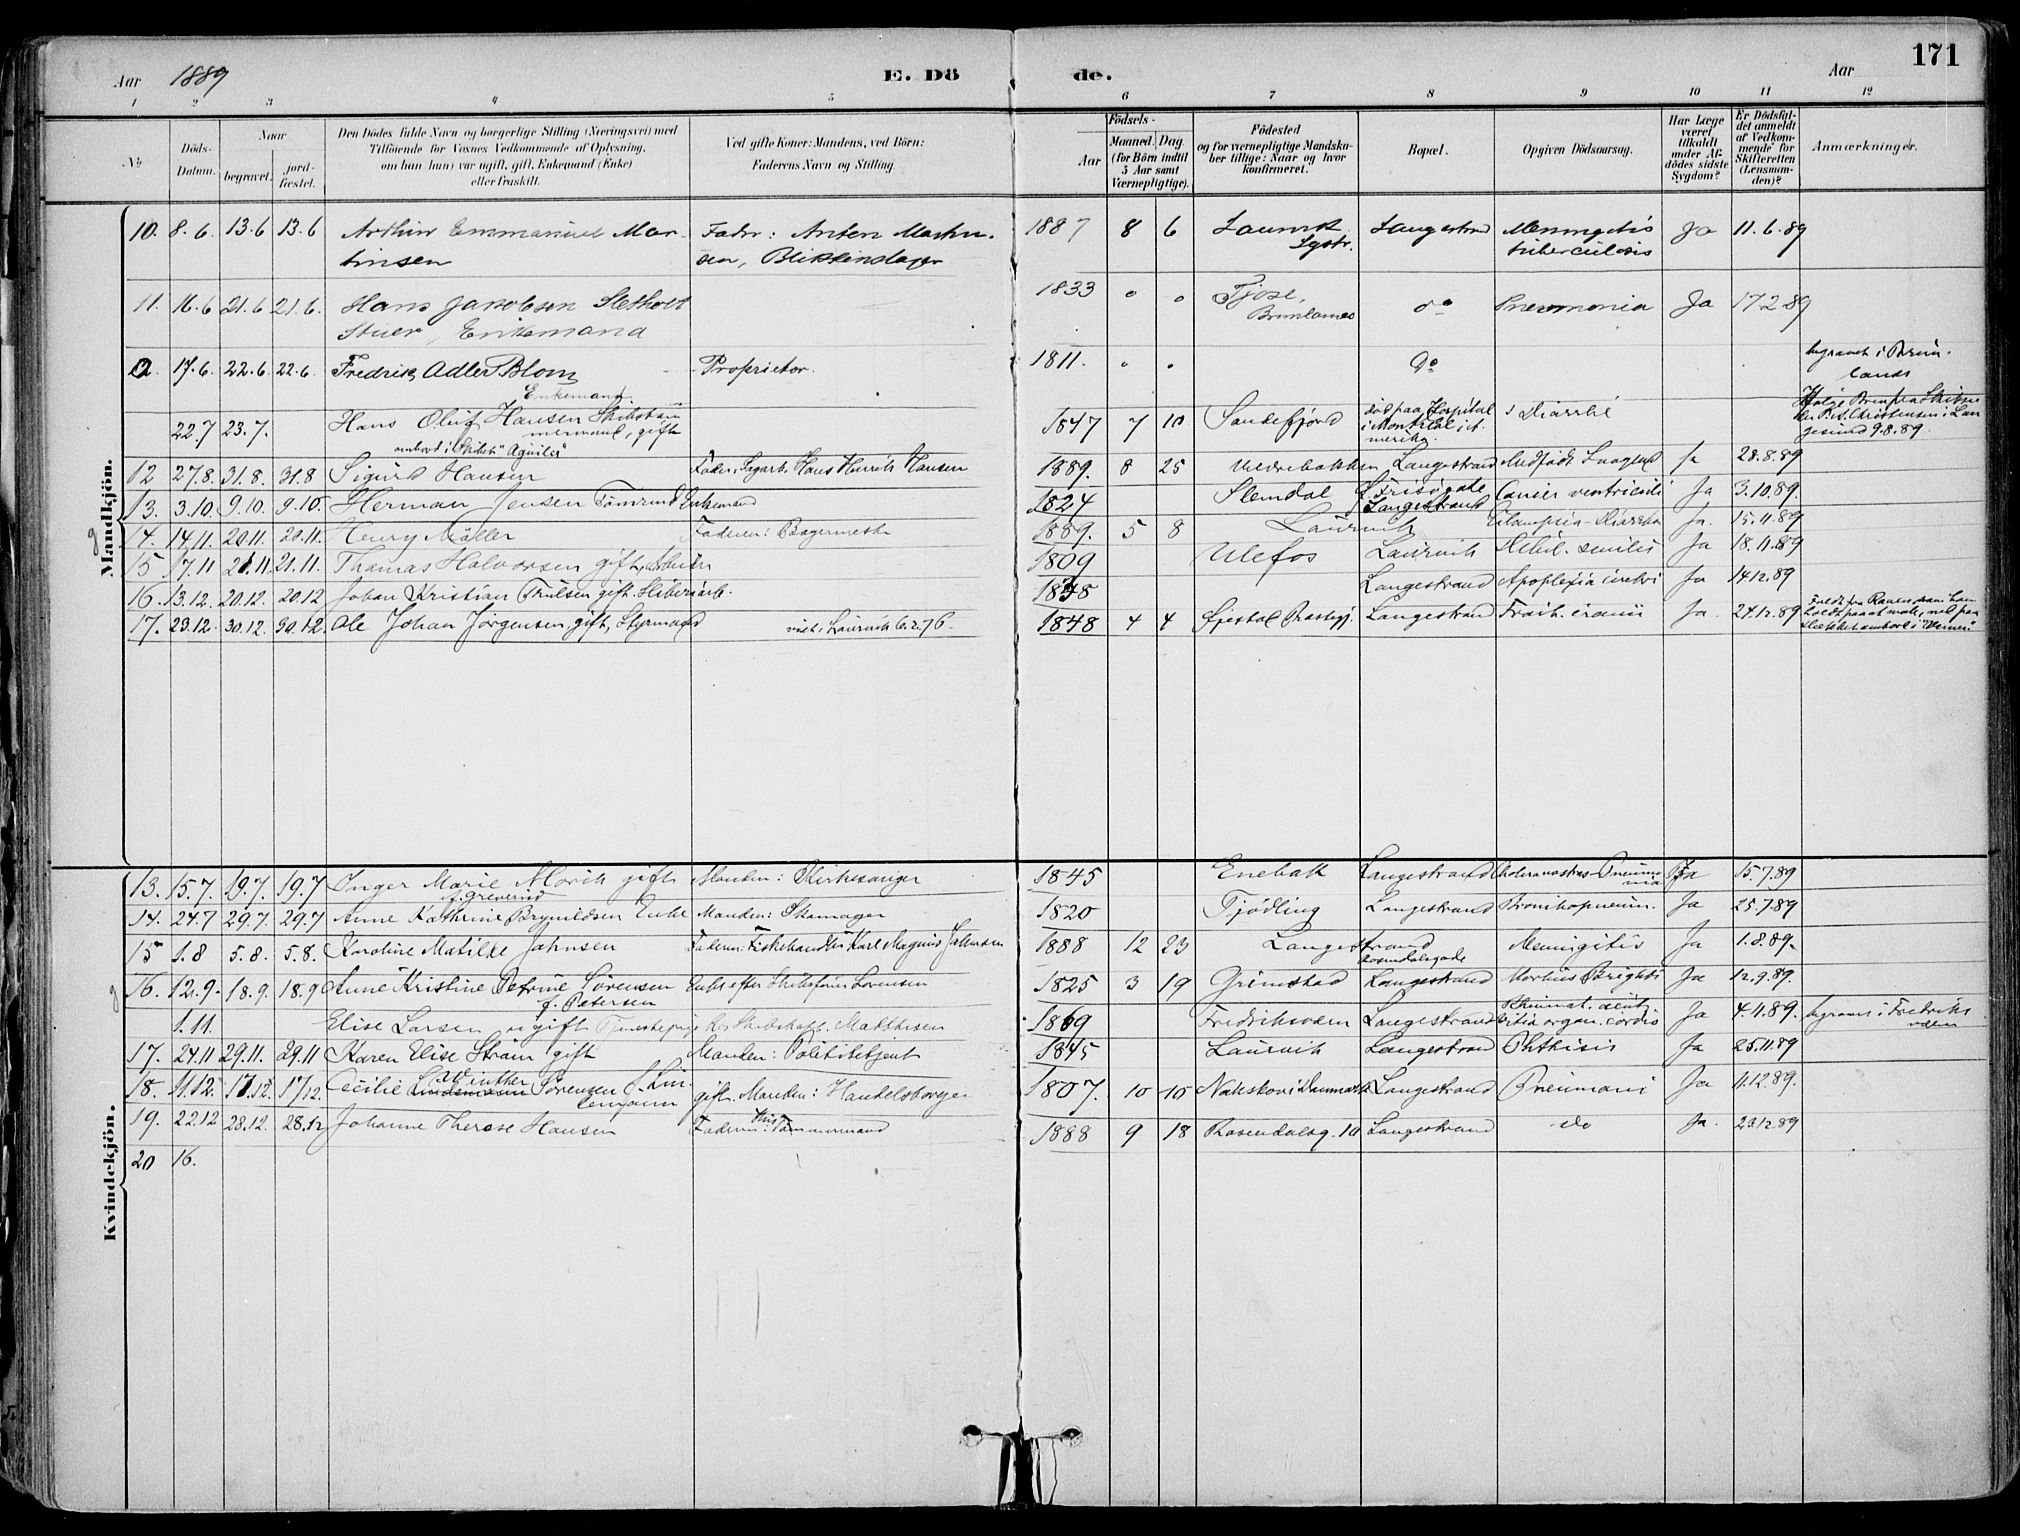 171
Aar 1889 E. Dö de. Aar
1 2 3 4 5 6 7 8 9 10 11 12
No
Döds-Datum.
Naar
begravet.
jordfæstet.
Den Dödes fulde Navn og borgerlige Stilling (Næringsvei) med
Tilföiende for Voxnes Vedkommende af Oplysning,
om han (hun) var ugift, gift, Enkemand (Enke)
eller fraskilt.
Ved gifte Koner: Mandens, ved Börn:
Faderens Navn og Stilling.
Födsels-
Aar
Maaned. Dag
(for Börn indtil
5 Aar samt
Værnepligtige).
Födested
og for værnepligtige Mandskaber tillige: Naar og hvor
konfirmeret.
Bopæl.
Opgiven Dödsaarsag.
Har Læge
været
tilkaldt
under Afdödes sidste
Sygdom?
Er Dödsfaldet anmeldt
af Vedkommende for
Skifteretten
(Lensmanden)?
Anmærkninger.
Mandkjön.
10. 8.6. 13.6 13.6 Arthur Emmanuel Martinsen Fader: Anton Martinsen, Blikkenslager 1887 8 6 Laurvik Langestrand Meningitis tuberculosis Ja 11.6.89
11. 16.6 21.6 21.6. Hans Jakobsen Sletholt Stuer, Enkemand 1833 " " Tjose, Brunlanes do Pneumonia Ja 17 2 89
17.6. 22.6. 22.6. Fredrik Adler Blom Enkemand. Proprietor. 1811. " " do begravet i Brunlanes
22.7 23.7. Hans Oluf Hansen gift ombord i Skibet "Aquila" 1847 7 10 Sandefjord död paa Hospital i Diarrhé 9.8.89.
12 27.8. 31.8. 31.8 Sigurd Hansen Fader: Hans Henrik Hansen 1889. 8 25 Langestrand Ja 28.8.89
13. 3.10. 9.10. 9.10. Herman Jensen Tömrmd Enkemand 1824 Slemdal Langestrand Cancer ventriculi Ja 3.10.89.
14. 14.11. 20.11. 20.11. Henry Möller Faderen: Bagermester 1889. 5 8 Laurvik Eclampsia - Diarrhea Ja. 15.11.89
15 17.11 21.11. 21.11. Thomas Halvorsen gift, 1809 Ulefos Laurvik Debil. senilis Ja 18.11.89
16. 13.12. 20.12. 20.12 Johan Kristian Trulsen gift. 1848 Langestrand Apoplexia cerebri Ja 14 12.89
17. 23.12. 30.12. 30.12. Ole Johan Jörgensen, gift, Styrmand 1848 4 4 Langestrand Fract. cranii Ja. 24.12.89
Kvindekjön.
13. 15.7. 19.7. 19.7 Inger Marie Mörik gift Manden: Kirkesanger 1845 Enebak Langestrand Pneumonia Ja 15.7.89
14. 24.7 29.7. 29.7 Anne Kathrine Brynildsen Enke Manden: Skomager 1820 Tjödling Langestrand Bronchopneum. Ja 25.7.89
15 1.8 5.8. 5.8. Karoline Matilde Jahnsen Faderen: Fiskehandler Karl Magnus Jahnsen 1888 12 23 Langestrand Rosendalsgade Meningitis Ja 1.8.89.
16. 12.9. 18.9. 18.9 Anne Kristine Petrine Sörensen f. Petersen Enke efter Sörensen 1825 3 19 Grimstad Langestrand Morbus Brightii Ja 12.9.89.
1.11. Elise Larsen ugift Tjenestepige 1869 Fredriksværn Langestrand Ja 4.11.89. begravet i Fredriksværn
17. 24.11 29.11. 29.11 Karen Elise Ström gift Manden: Politibetjent 1845 Laurvik Langestrand Phthisis Ja 25.11.89
18. 11.12. 17.12. 17/12. Cecilie Winther Sörensen f. Linemann gift. Manden: Handelsborger 1807. 10 10 Nakskov i Danmark Langestrand Pneumoni Ja 11.12.89.
19. 22.12 28.12. 28.12 Johanne Therese Hansen Faderen: Tömmermand 1888 9 18 Rosendalsg. 10 Langestrand do Ja. 23.12.89
20 16.